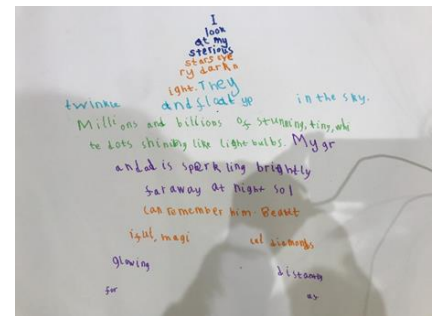 I
look
at my
sterious
stars eve
ry dark n
ight. They
twinkle and float up in the sky.
Millions and billions of stunning, tiny, whi
te dots shining like light bulbs. My gr
andad is sparkling brightly
far away at night so I
can remember him. Beaut
iful, magi cal diamonds
glowing distants
far as